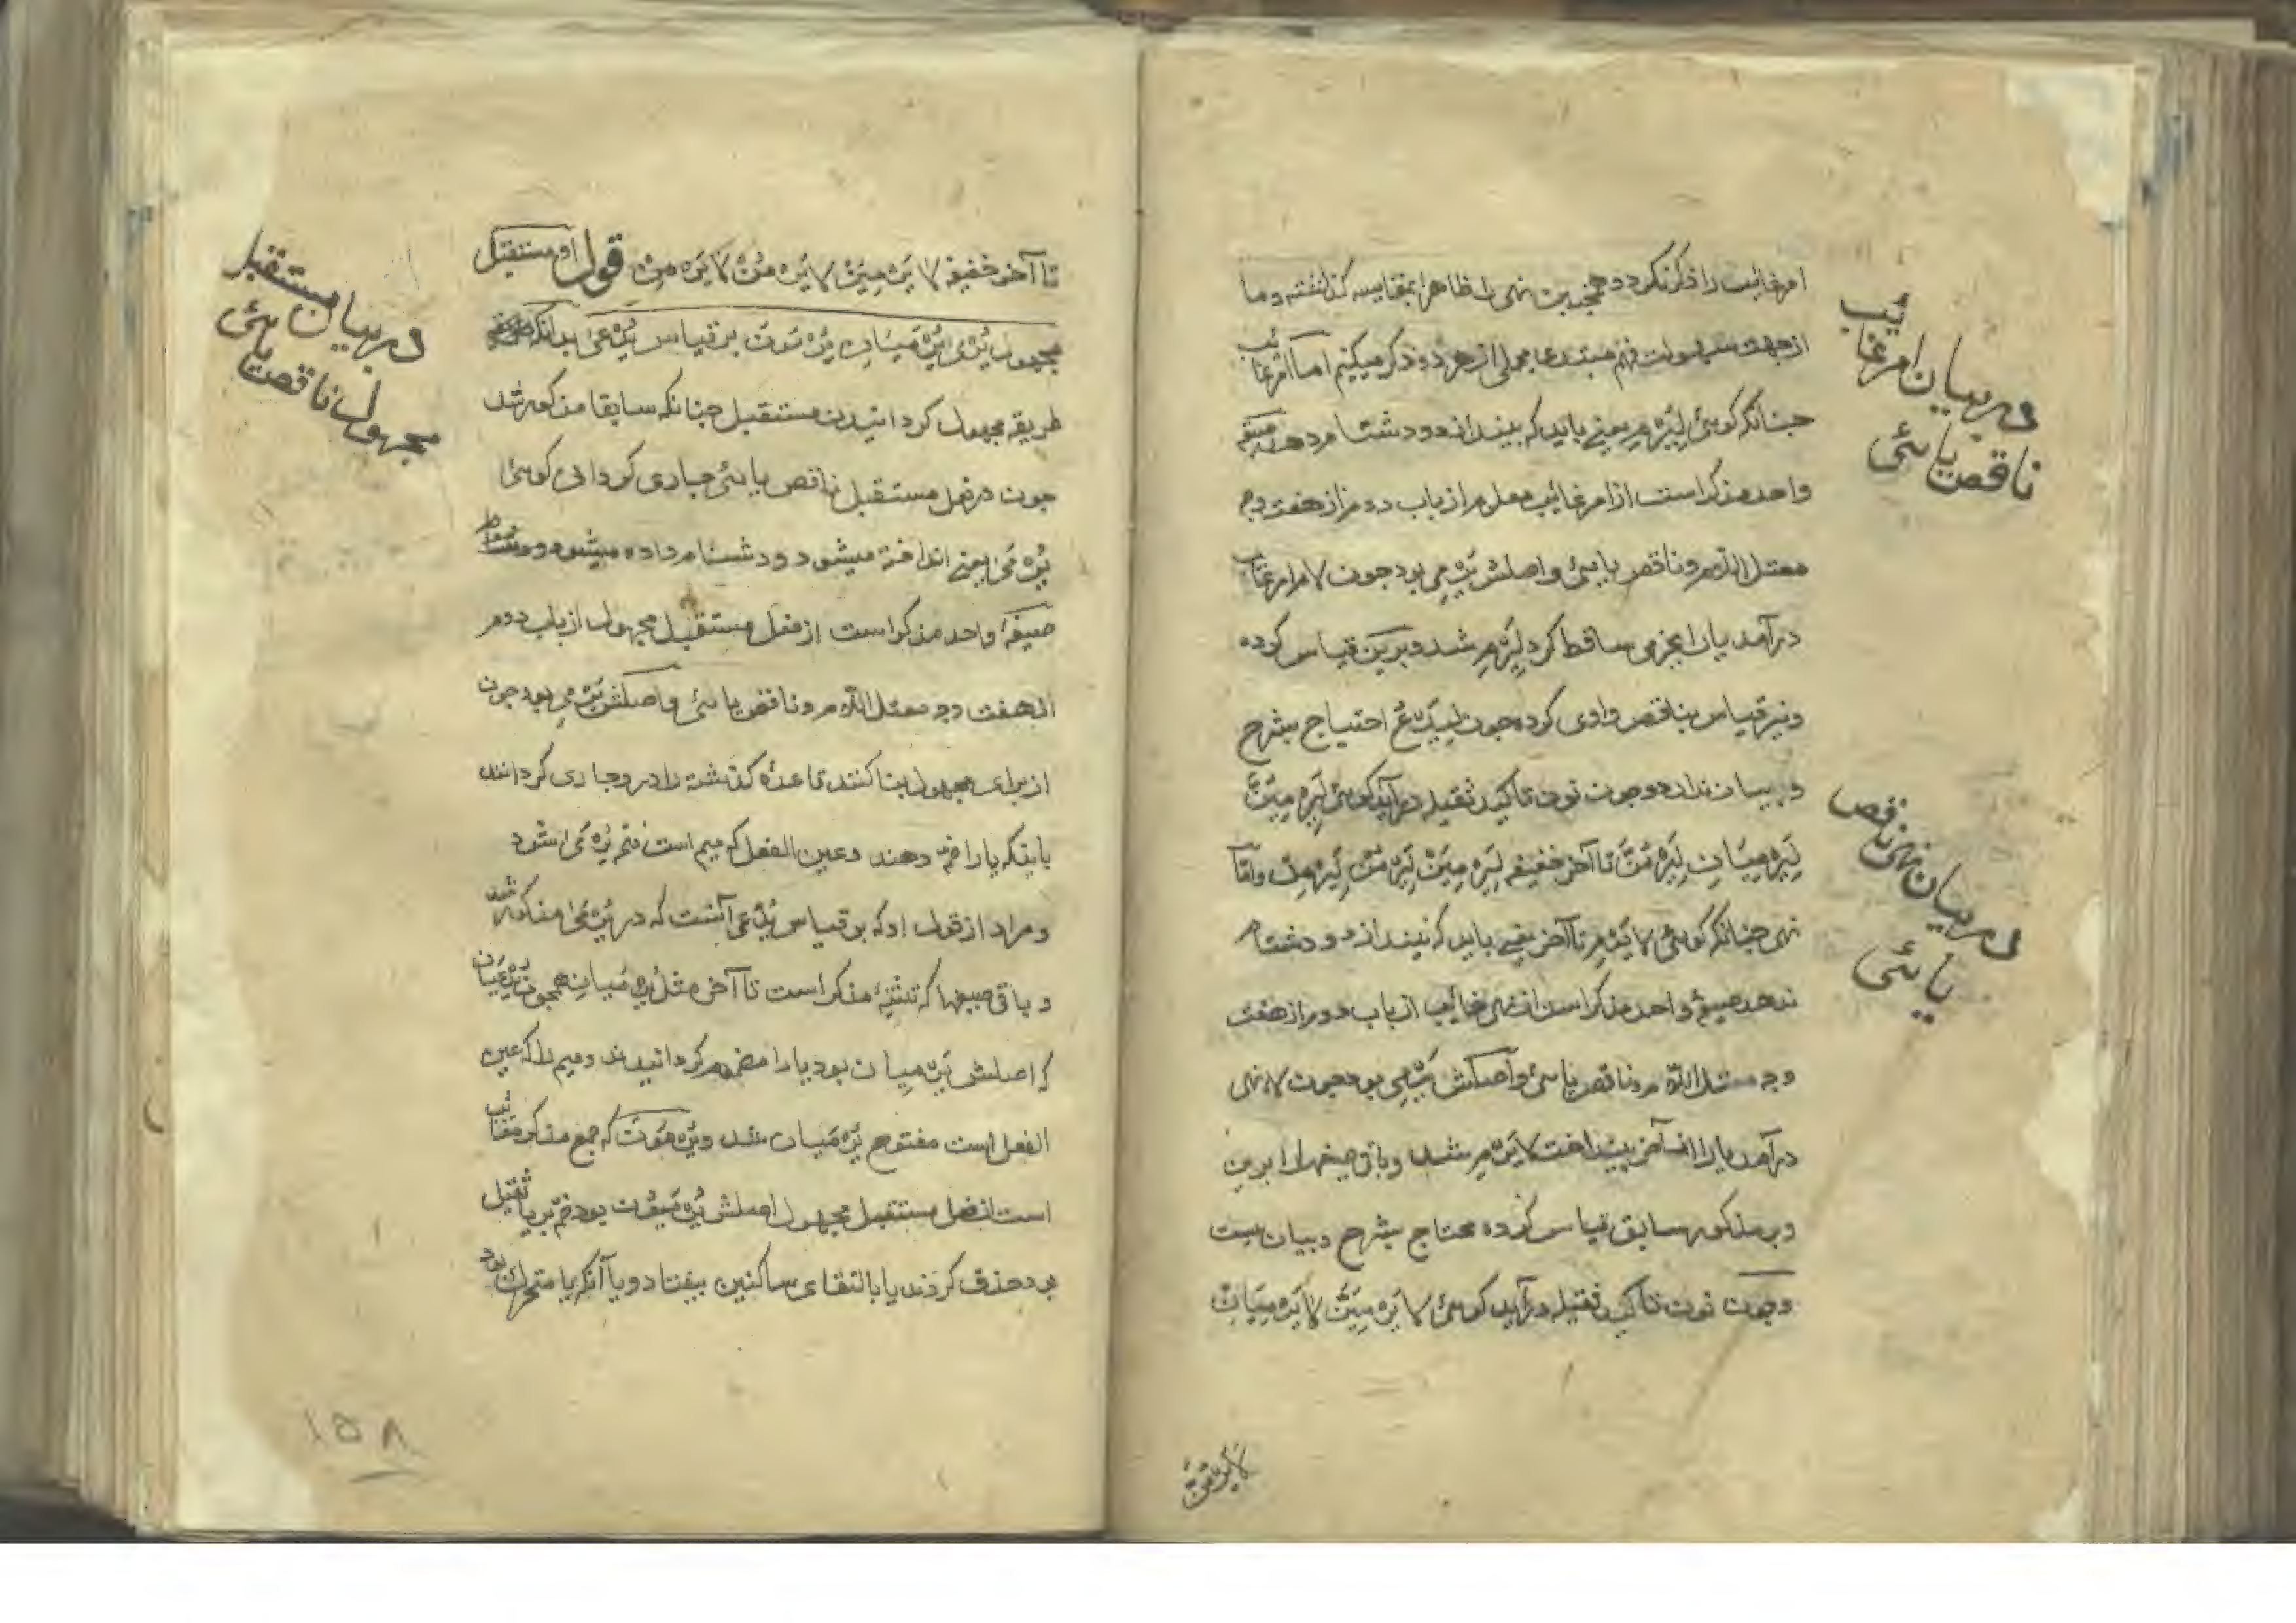 امر غائب را ذکر نکرد و همچنین نهی را ظاهرا بمقایسه گذاشته و ما
از جهت سهولت فهم مبتدی مجملی از هر دو ذکر میکنیم اما امر غائب
چنانکه گوئی لِیَرْمِ یعنی باید که بیندازد و دشنام دهد صیغه
واحد مذکر است از امر غائب معلوم از باب دوم از هفت وجه
معتل اللام و ناقص یائی و اصلش یَرْمِی بود چون لام امر غائب
درآمد یا را بجزمی ساقط کرد لِیَرْمِ شد و برین قیاس کرده
و نیز قیاس بناقص واوی کرده چون لِیَدْعُ احتیاج بشرح
و بیان ندارد و چون نون تاکید ثقیله درآید گوئی لِیَرْمِیَنَّ
لِیَرْمِیَانِّ لِیَرْمُنَّ تا آخر خفیفه لِیَرْمِیَنْ لِیَرْمُنْ لِتَرْمِیَنْ و امّا
نهی چنانکه گوئی لا یَرْمِ تا آخر یعنی باید که نیندازد و دشنام
ندهد صیغهٔ واحد مذکر است از نهی غائب از باب دوم از هفت
وجه معتل اللام و ناقص یائی و اصلش یَرْمِی بود چون لا نهی
درآمد یا را از آخر بینداخت لا یَرْمِ شد و باقی صیغها را برین
و بر مذکور سابق قیاس کرده محتاج بشرح و بیان نیست
و چون نون تاکید ثقیله درآید گوئی لا یَرْمِیَنَّ لا یَرْمِیَانِّ
لا یَرْمُنَّ
در بیان امر غائب
ناقص یائی
در بیان نهی ناقص
یائی
تا آخر خفیفه لا یَرْمِیَنْ لا یَرْمُنْ لا تَرْمِیَنْ قول او مستقبل
مجهول یُرْمی یُرْمَیَانِ یُرْمَوْنَ بر قیاس یُدْعی بدانکه
طریقه مجهول گردانیدن مستقبل چنانکه سابقا مذکور شد
چون در فعل مستقبل ناقص یائی جاری گردانی گوئی
یُرْمَی یعنی انداخته میشود و دشنام داده میشود
صیغهٔ واحد مذکر است از فعل مستقبل مجهول از باب دوم
از هفت وجه معتل اللام و ناقص یائی و اصلش یَرْمِی بود چون
از برای مجهول بنا کنند قاعدهٔ گذشته را در و جاری گردانند
باینکه یا را ضمّ دهند و عین الفعل که میم است فتح یُرْمَی شود
و مراد از قول او که بر قیاس یُدْعی آنست که در یُرْمَی مذکور شد
و باقی صیغها که تثنیهٔ مذکر است تا آخر مثل یُرْمَیَانِ همچون یُدْعَیَانِ
که اصلش یَرْمِیَانِ بود یا را مضموم گردانیدند و میم را که عین
الفعل است مفتوح یُرْمَیَانِ شد و یُرْمَوْنَ که جمع مذکر غائب
است از فعل مستقبل مجهول اصلش یُرْمَیُوْنَ بود ضمّ بر یا ثقیل
بود حذف کردند یا بالتقای ساکنین بیفتاد و یا آنکه یا متحرک بود
در بیان مستقبل
مجهول ناقص یائی
۱۵۸